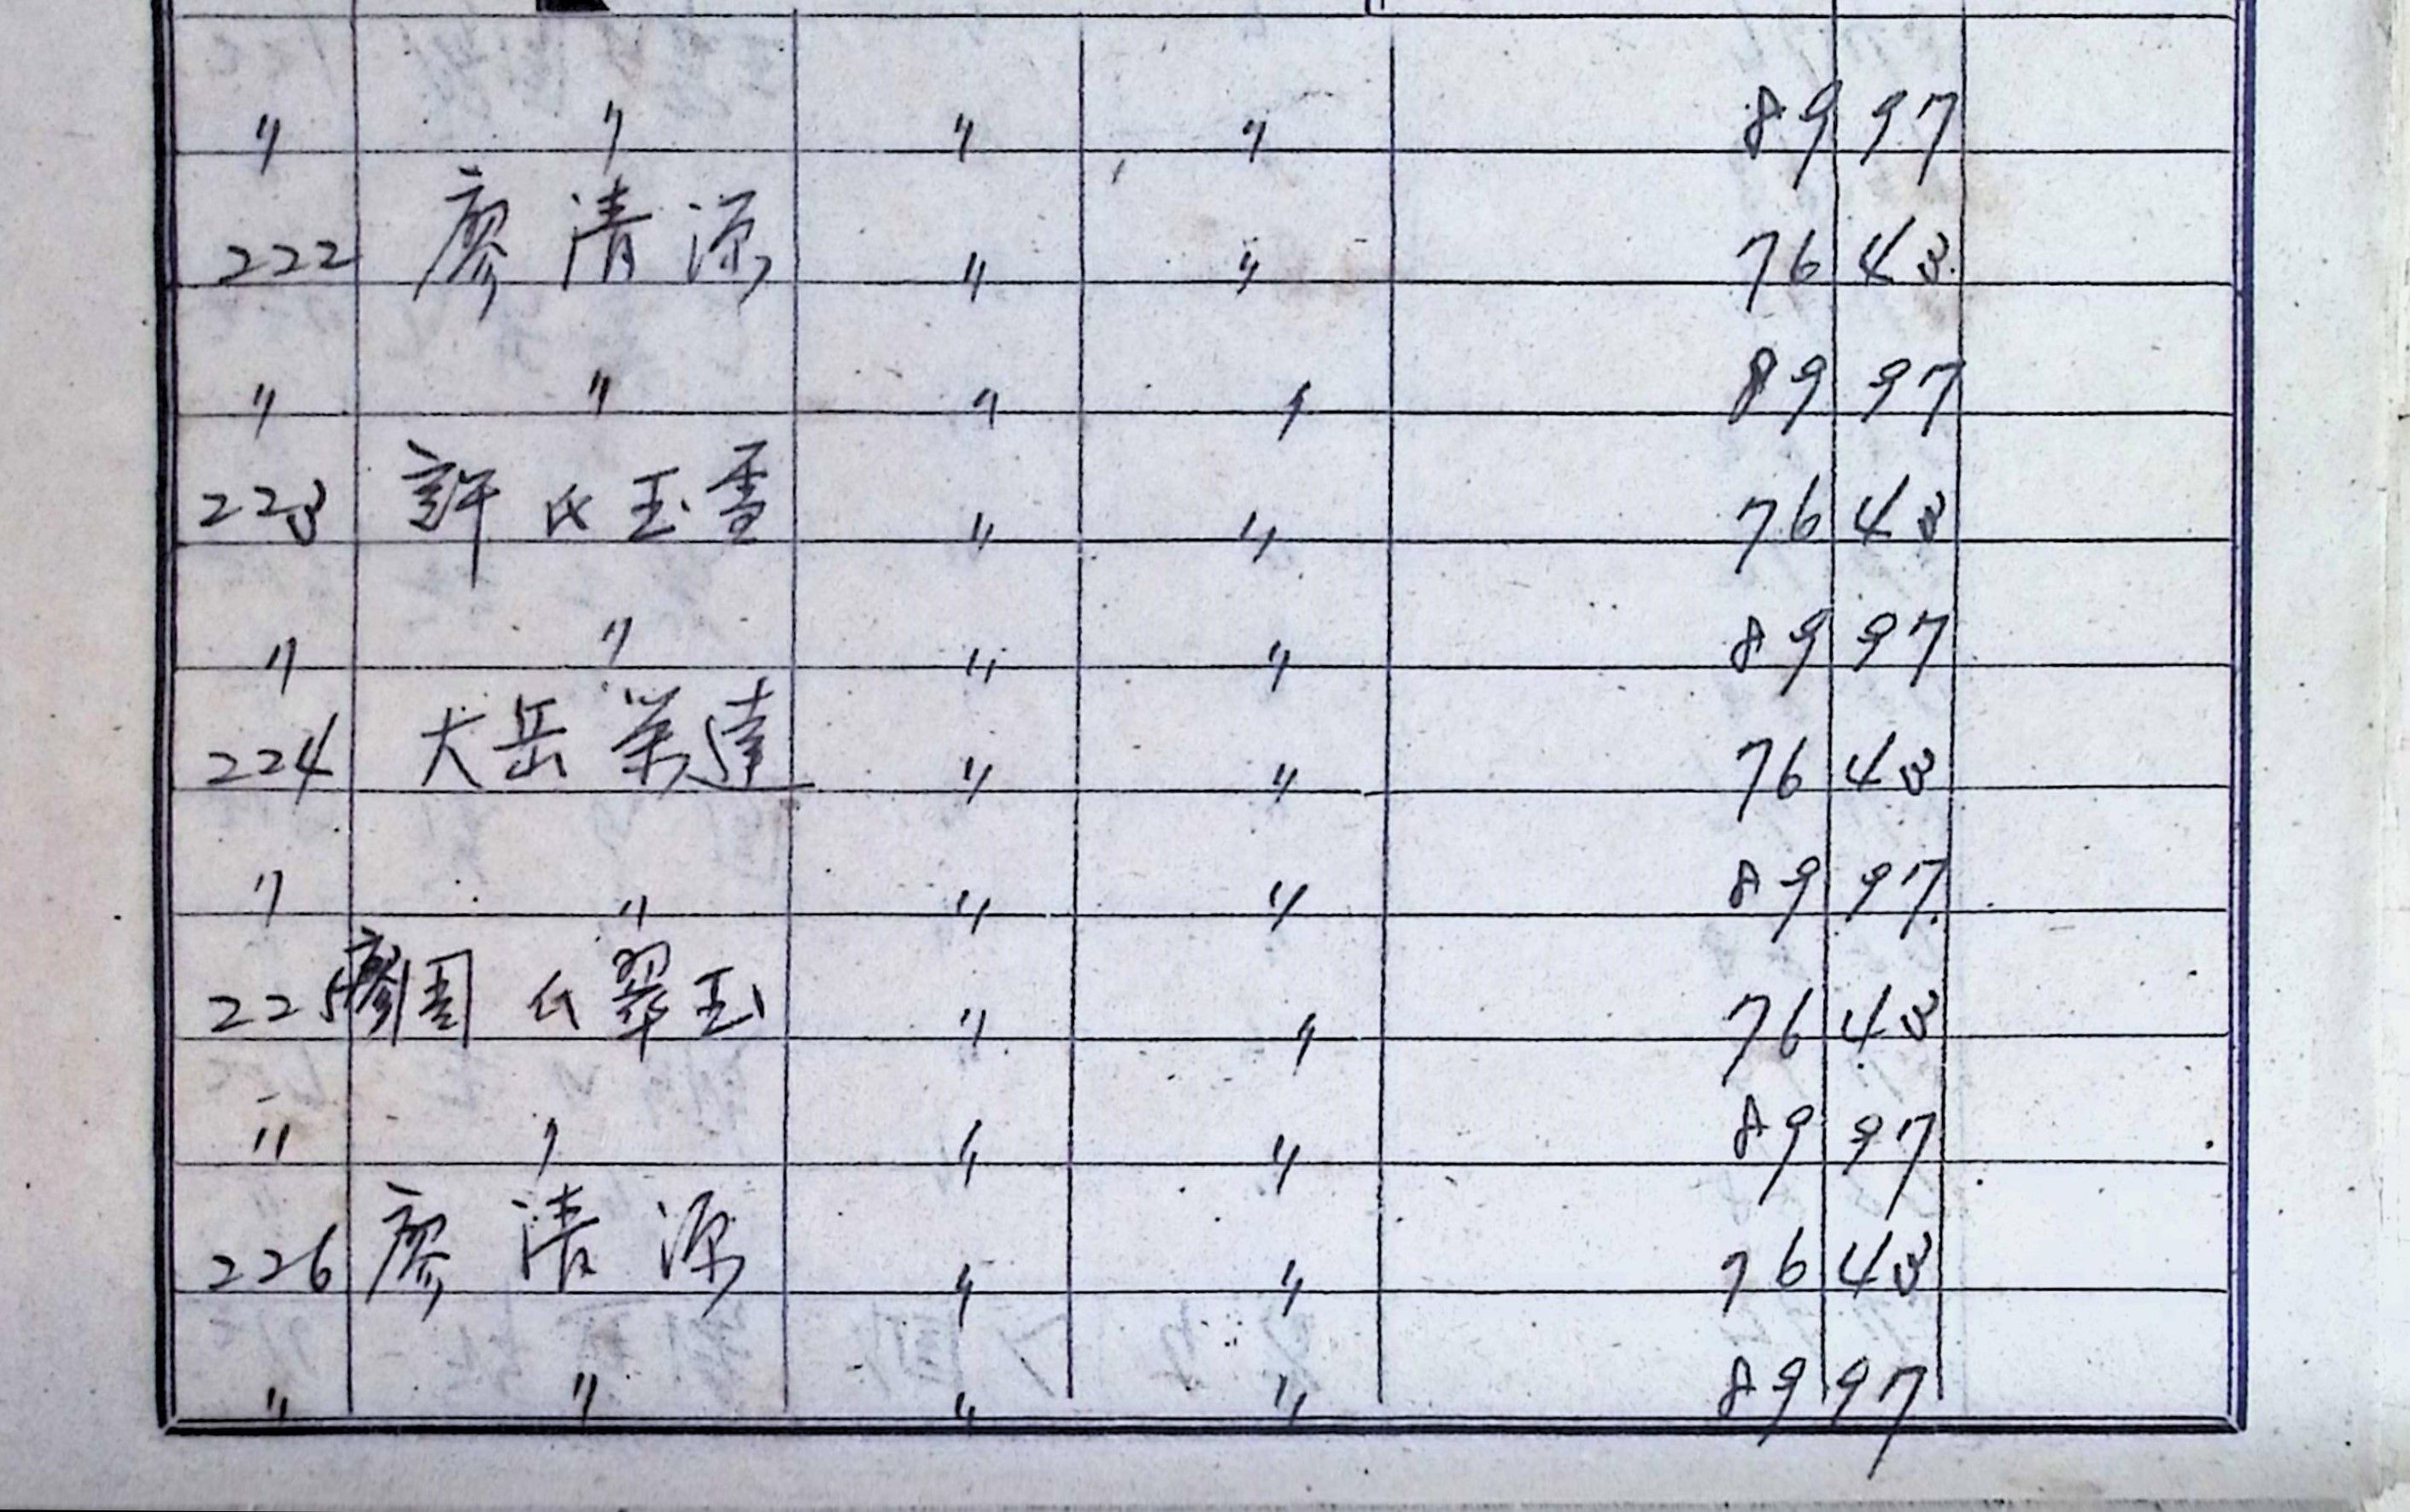 〃 〃 〃 〃 89 97
222 廖清源 〃 〃 76 43
〃 〃 〃 〃 89 97
223 許氏玉雪 〃 〃 76 43
〃 〃 〃 〃 89 97
224 大岳栄達 〃 〃 76 43
〃 〃 〃 〃 89 97
225 廖周氏翠玉 〃 〃 76 43
〃 〃 〃 〃 89 97
226 廖清源 〃 〃 76 43
〃 〃 〃 〃 89 97